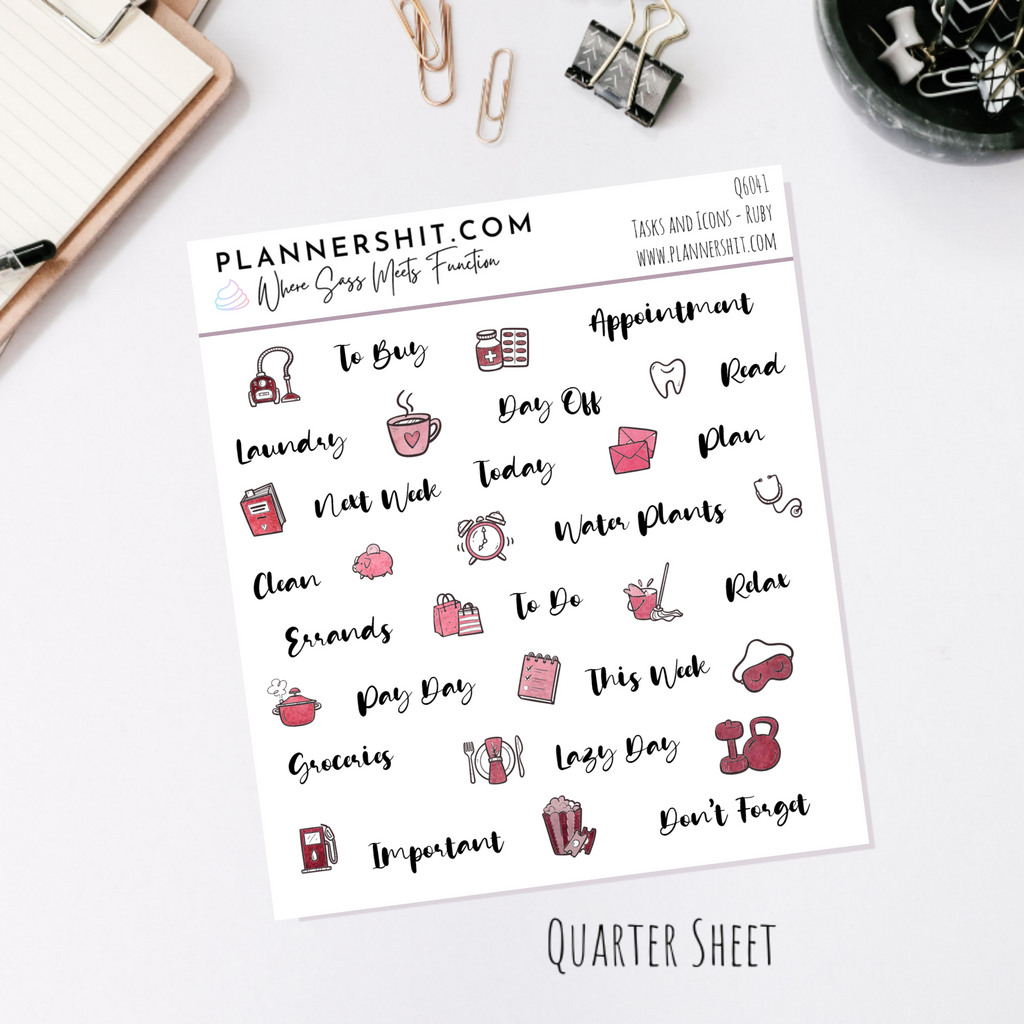 PLANNERSHIT.COM
Where Sass Meets Function
Q6041
Tasks and Icons - Ruby
www.plannershit.com
To Buy
Appointment
Read
Laundry
Day Off
Plan
Next Week
Today
Water Plants
Clean
To Do
Relax
Errands
Pay Day
This Week
Groceries
Lazy Day
Important
Don't Forget
Quarter Sheet